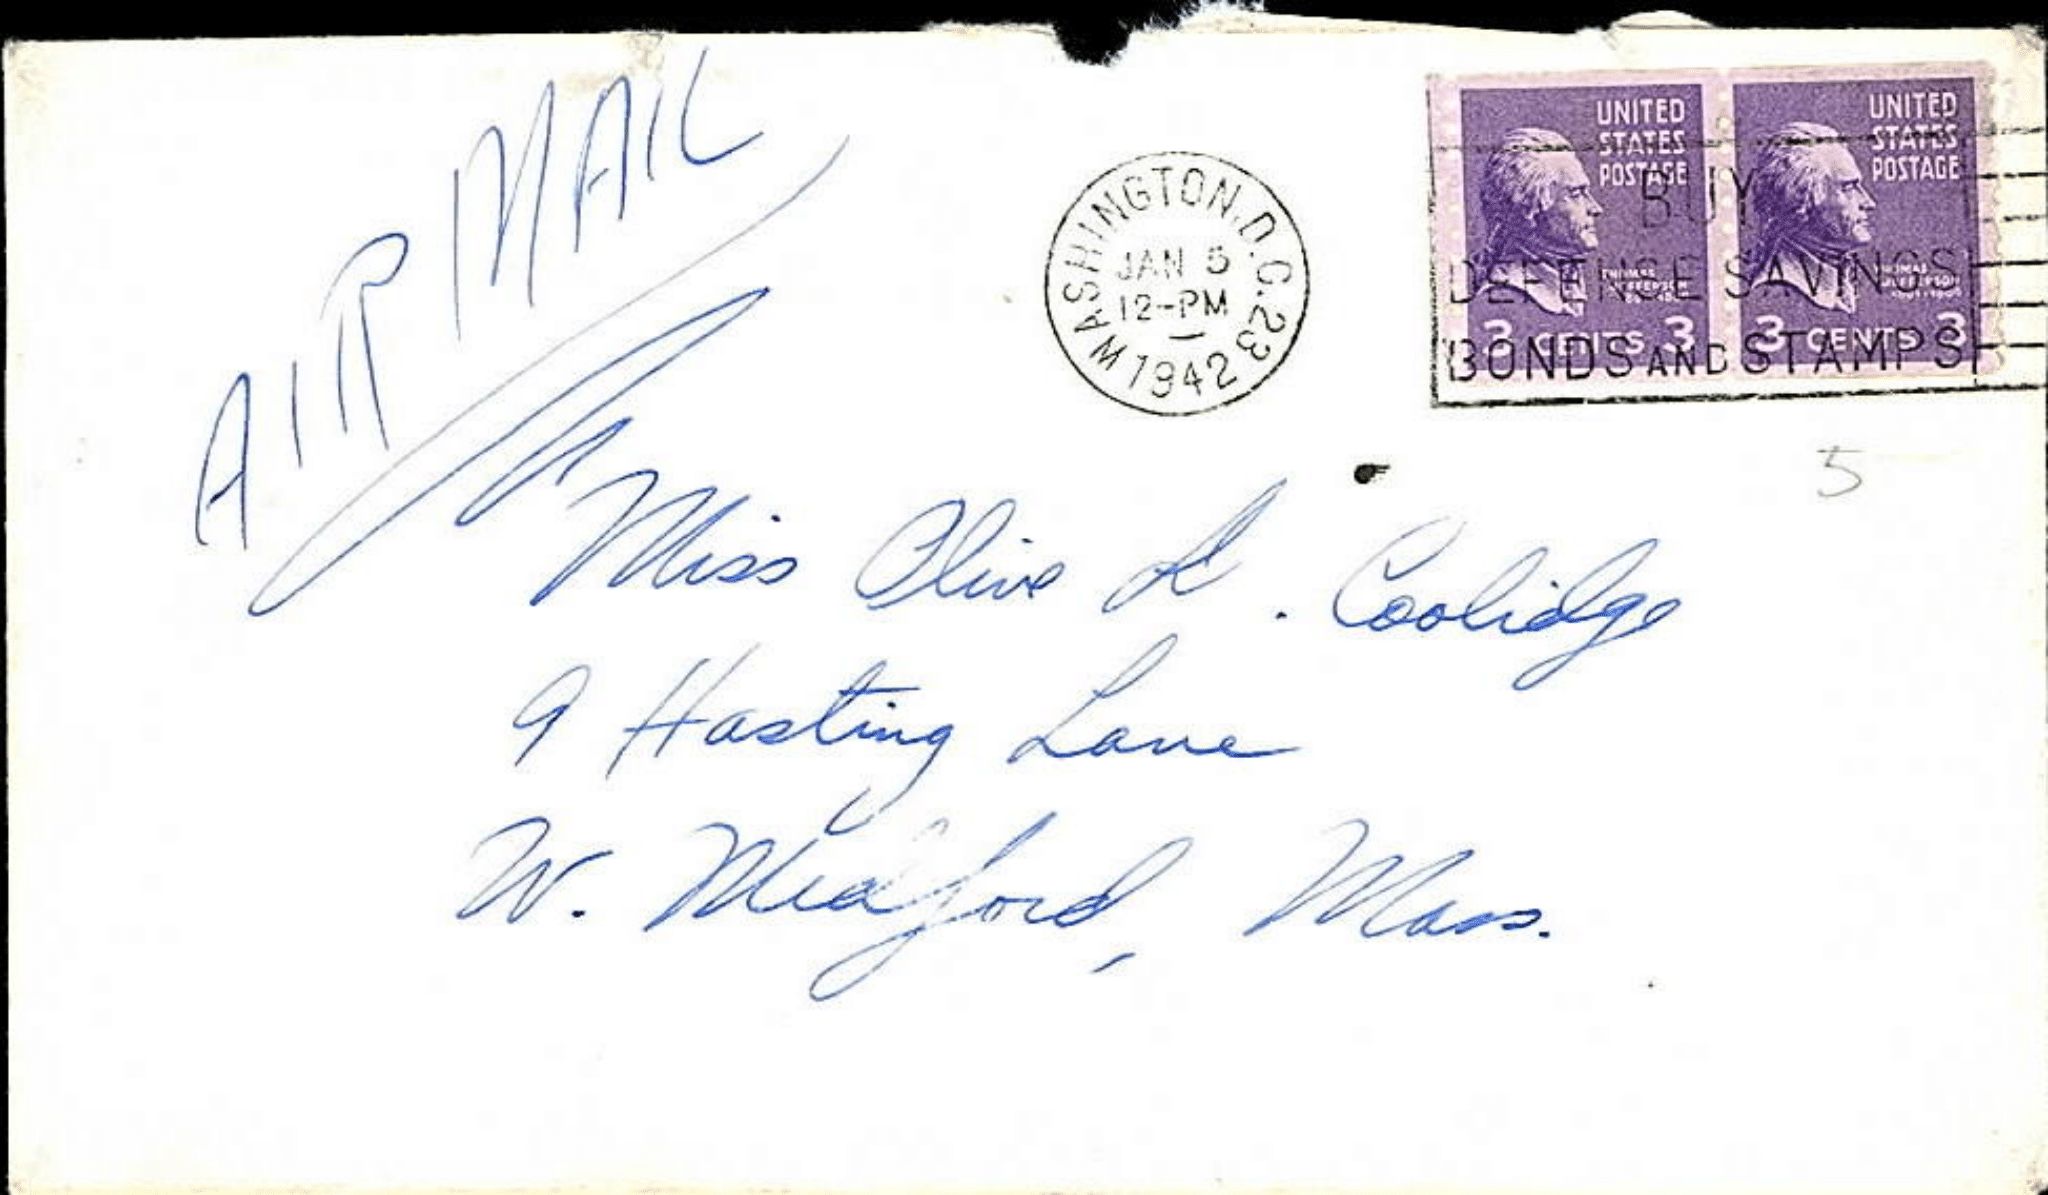 AIR MAIL
WASHINGTON, D.C. 23
JAN 5
12-PM
1942
UNITED STATES POSTAGE
THOMAS JEFFERSON
3 CENTS 3
UNITED STATES POSTAGE
THOMAS JEFFERSON
3 CENTS 3
BUY
DEFENSE SAVINGS
BONDS AND STAMPS
5
Miss Olive L. Coolidge
9 Hasting Lane
W. Medford, Mass.